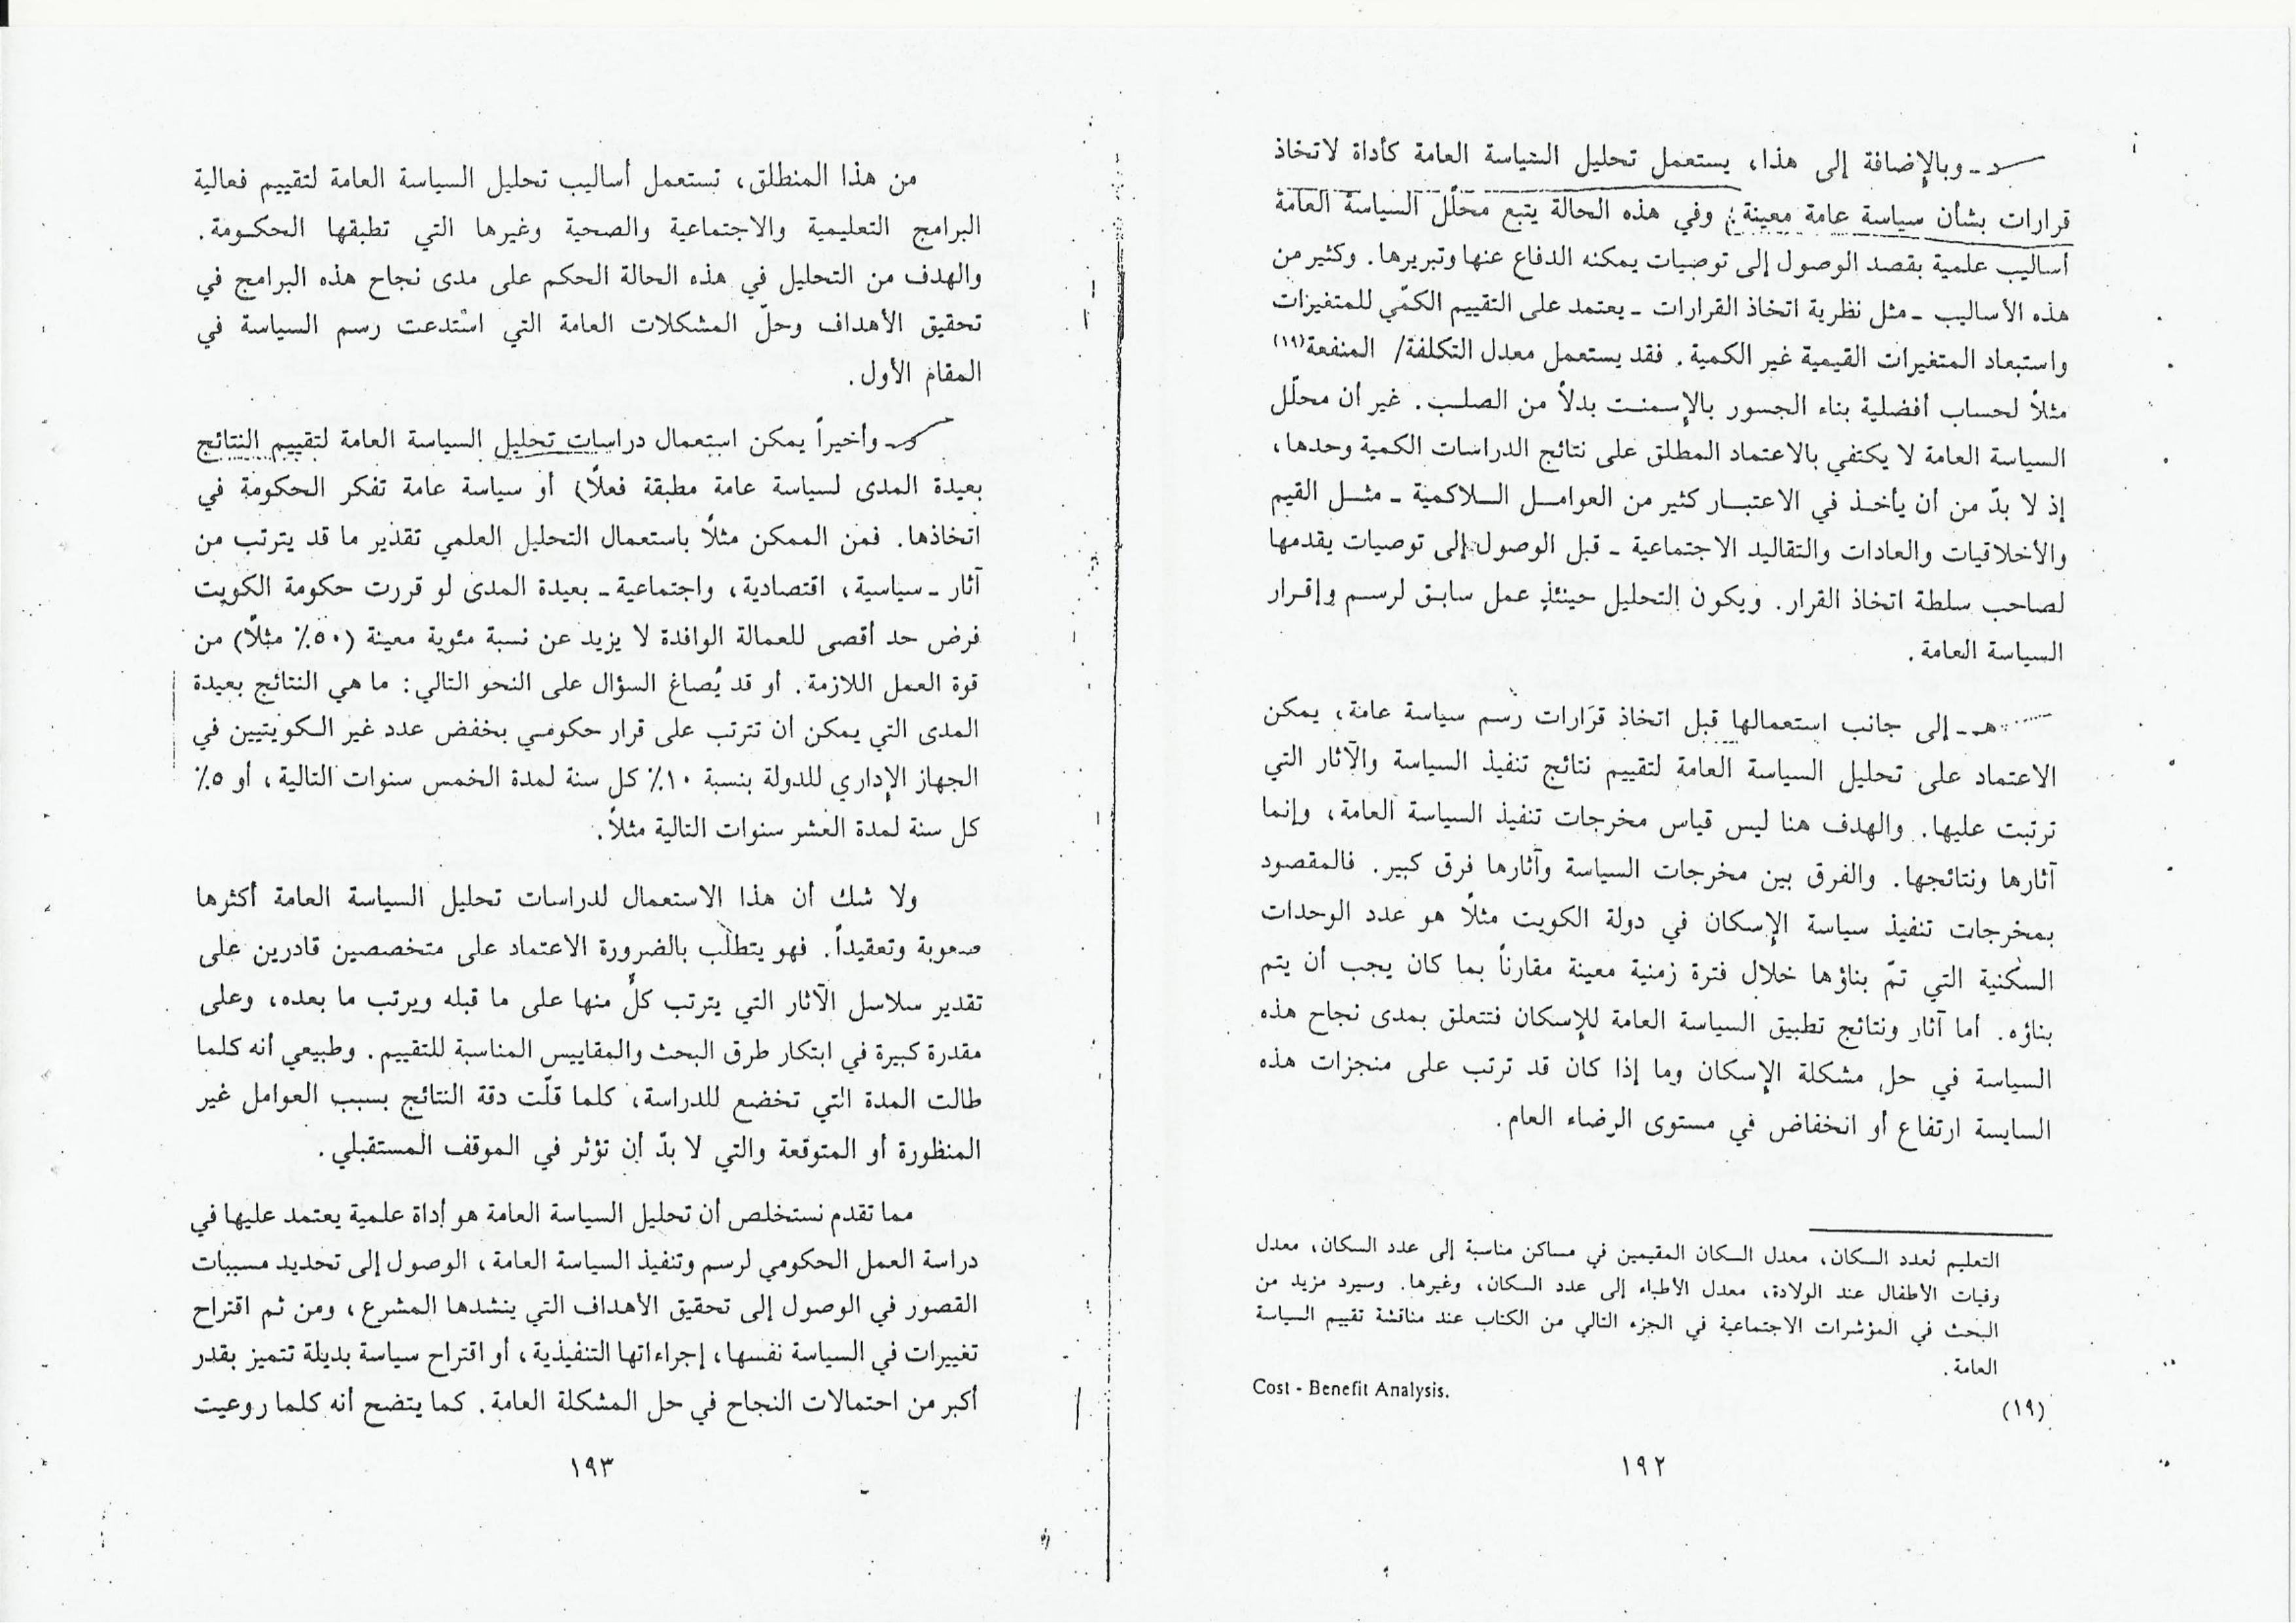 د - وبالإضافة إلى هذا، يستعمل تحليل السياسة العامة كأداة لاتخاذ
قرارات بشأن سياسة عامة معينة؛ وفي هذه الحالة يتبع محلّل السياسة العامة
أساليب علمية بقصد الوصول إلى توصيات يمكنه الدفاع عنها وتبريرها. وكثير من
هذه الأساليب - مثل نظرية اتخاذ القرارات - يعتمد على التقييم الكمّي للمتغيرات
واستبعاد المتغيرات القيمية غير الكمية. فقد يستعمل معدل التكلفة/ المنفعة(١٩)
مثلاً لحساب أفضلية بناء الجسور بالإسمنت بدلاً من الصلب. غير أن محلّل
السياسة العامة لا يكتفي بالاعتماد المطلق على نتائج الدراسات الكمية وحدها،
إذ لا بدّ من أن يأخذ في الاعتبار كثير من العوامل اللاكمية - مثل القيم
والأخلاقيات والعادات والتقاليد الاجتماعية - قبل الوصول إلى توصيات يقدمها
لصاحب سلطة اتخاذ القرار. ويكون التحليل حينئذٍ عمل سابق لرسم وإقرار
السياسة العامة.
هـ - إلى جانب استعمالها قبل اتخاذ قرارات رسم سياسة عامة، يمكن
الاعتماد على تحليل السياسة العامة لتقييم نتائج تنفيذ السياسة والآثار التي
ترتبت عليها. والهدف هنا ليس قياس مخرجات تنفيذ السياسة العامة، وإنما
آثارها ونتائجها. والفرق بين مخرجات السياسة وآثارها فرق كبير. فالمقصود
بمخرجات تنفيذ سياسة الإسكان في دولة الكويت مثلاً هو عدد الوحدات
السكنية التي تمّ بناؤها خلال فترة زمنية معينة مقارناً بما كان يجب أن يتم
بناؤه. أما آثار ونتائج تطبيق السياسة العامة للإسكان فتتعلق بمدى نجاح هذه
السياسة في حل مشكلة الإسكان وما إذا كان قد ترتب على منجزات هذه
السايسة ارتفاع أو انخفاض في مستوى الرضاء العام.
التعليم لعدد السكان، معدل السكان المقيمين في مساكن مناسبة إلى عدد السكان، معدل
وفيات الأطفال عند الولادة، معدل الأطباء إلى عدد السكان، وغيرها. وسيرد مزيد من
البحث في المؤشرات الاجتماعية في الجزء التالي من الكتاب عند مناقشة تقييم السياسة
العامة.
(١٩) Cost - Benefit Analysis.
١٩٢
من هذا المنطلق، تستعمل أساليب تحليل السياسة العامة لتقييم فعالية
البرامج التعليمية والاجتماعية والصحية وغيرها التي تطبقها الحكومة.
والهدف من التحليل في هذه الحالة الحكم على مدى نجاح هذه البرامج في
تحقيق الأهداف وحلّ المشكلات العامة التي استدعت رسم السياسة في
المقام الأول.
و - وأخيراً يمكن استعمال دراسات تحليل السياسة العامة لتقييم النتائج
بعيدة المدى لسياسة عامة مطبقة فعلاً) أو سياسة عامة تفكر الحكومة في
اتخاذها. فمن الممكن مثلاً باستعمال التحليل العلمي تقدير ما قد يترتب من
آثار - سياسية، اقتصادية، واجتماعية - بعيدة المدى لو قررت حكومة الكويت
فرض حد أقصى للعمالة الوافدة لا يزيد عن نسبة مئوية معينة (٥٠٪ مثلاً) من
قوة العمل اللازمة. أو قد يُصاغ السؤال على النحو التالي: ما هي النتائج بعيدة
المدى التي يمكن أن تترتب على قرار حكومي بخفض عدد غير الكويتيين في
الجهاز الإداري للدولة بنسبة ١٠٪ كل سنة لمدة الخمس سنوات التالية، أو ٥٪
كل سنة لمدة العشر سنوات التالية مثلاً.
ولا شك أن هذا الاستعمال لدراسات تحليل السياسة العامة أكثرها
صعوبة وتعقيداً. فهو يتطلّب بالضرورة الاعتماد على متخصصين قادرين على
تقدير سلاسل الآثار التي يترتب كلٌ منها على ما قبله ويرتب ما بعده، وعلى
مقدرة كبيرة في ابتكار طرق البحث والمقاييس المناسبة للتقييم. وطبيعي أنه كلما
طالت المدة التي تخضع للدراسة، كلما قلّت دقة النتائج بسبب العوامل غير
المنظورة أو المتوقعة والتي لا بدّ أن تؤثر في الموقف المستقبلي.
مما تقدم نستخلص أن تحليل السياسة العامة هو أداة علمية يعتمد عليها في
دراسة العمل الحكومي لرسم وتنفيذ السياسة العامة، الوصول إلى تحديد مسببات
القصور في الوصول إلى تحقيق الأهداف التي ينشدها المشرع، ومن ثم اقتراح
تغييرات في السياسة نفسها، إجراءاتها التنفيذية، أو اقتراح سياسة بديلة تتميز بقدر
أكبر من احتمالات النجاح في حل المشكلة العامة. كما يتضح أنه كلما روعيت
١٩٣